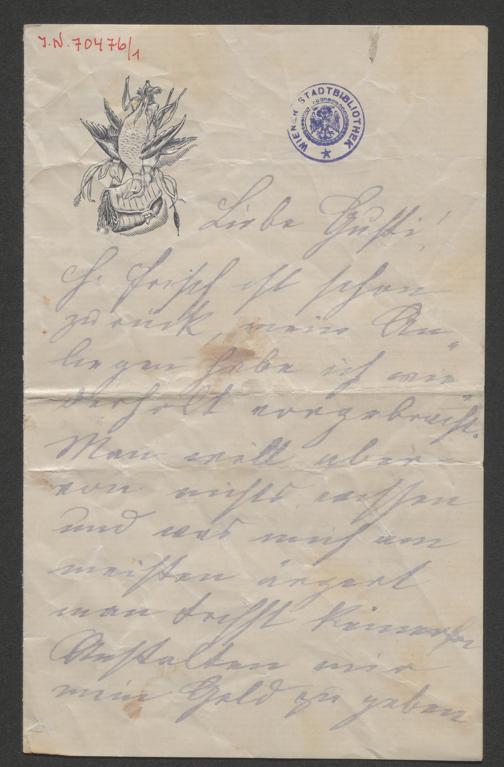 J.N. 70476/1
WIENER STADTBIBLIOTHEK
Liebe Gusti!
H. Frisch ist schon
zurück, mein An-
liegen habe ich wie-
derholt vorgebracht.
Man will aber
von nichts wissen
und was mich am
meisten ärgert
man trifft keinerlei
Anstalten mir
mein Geld zu geben